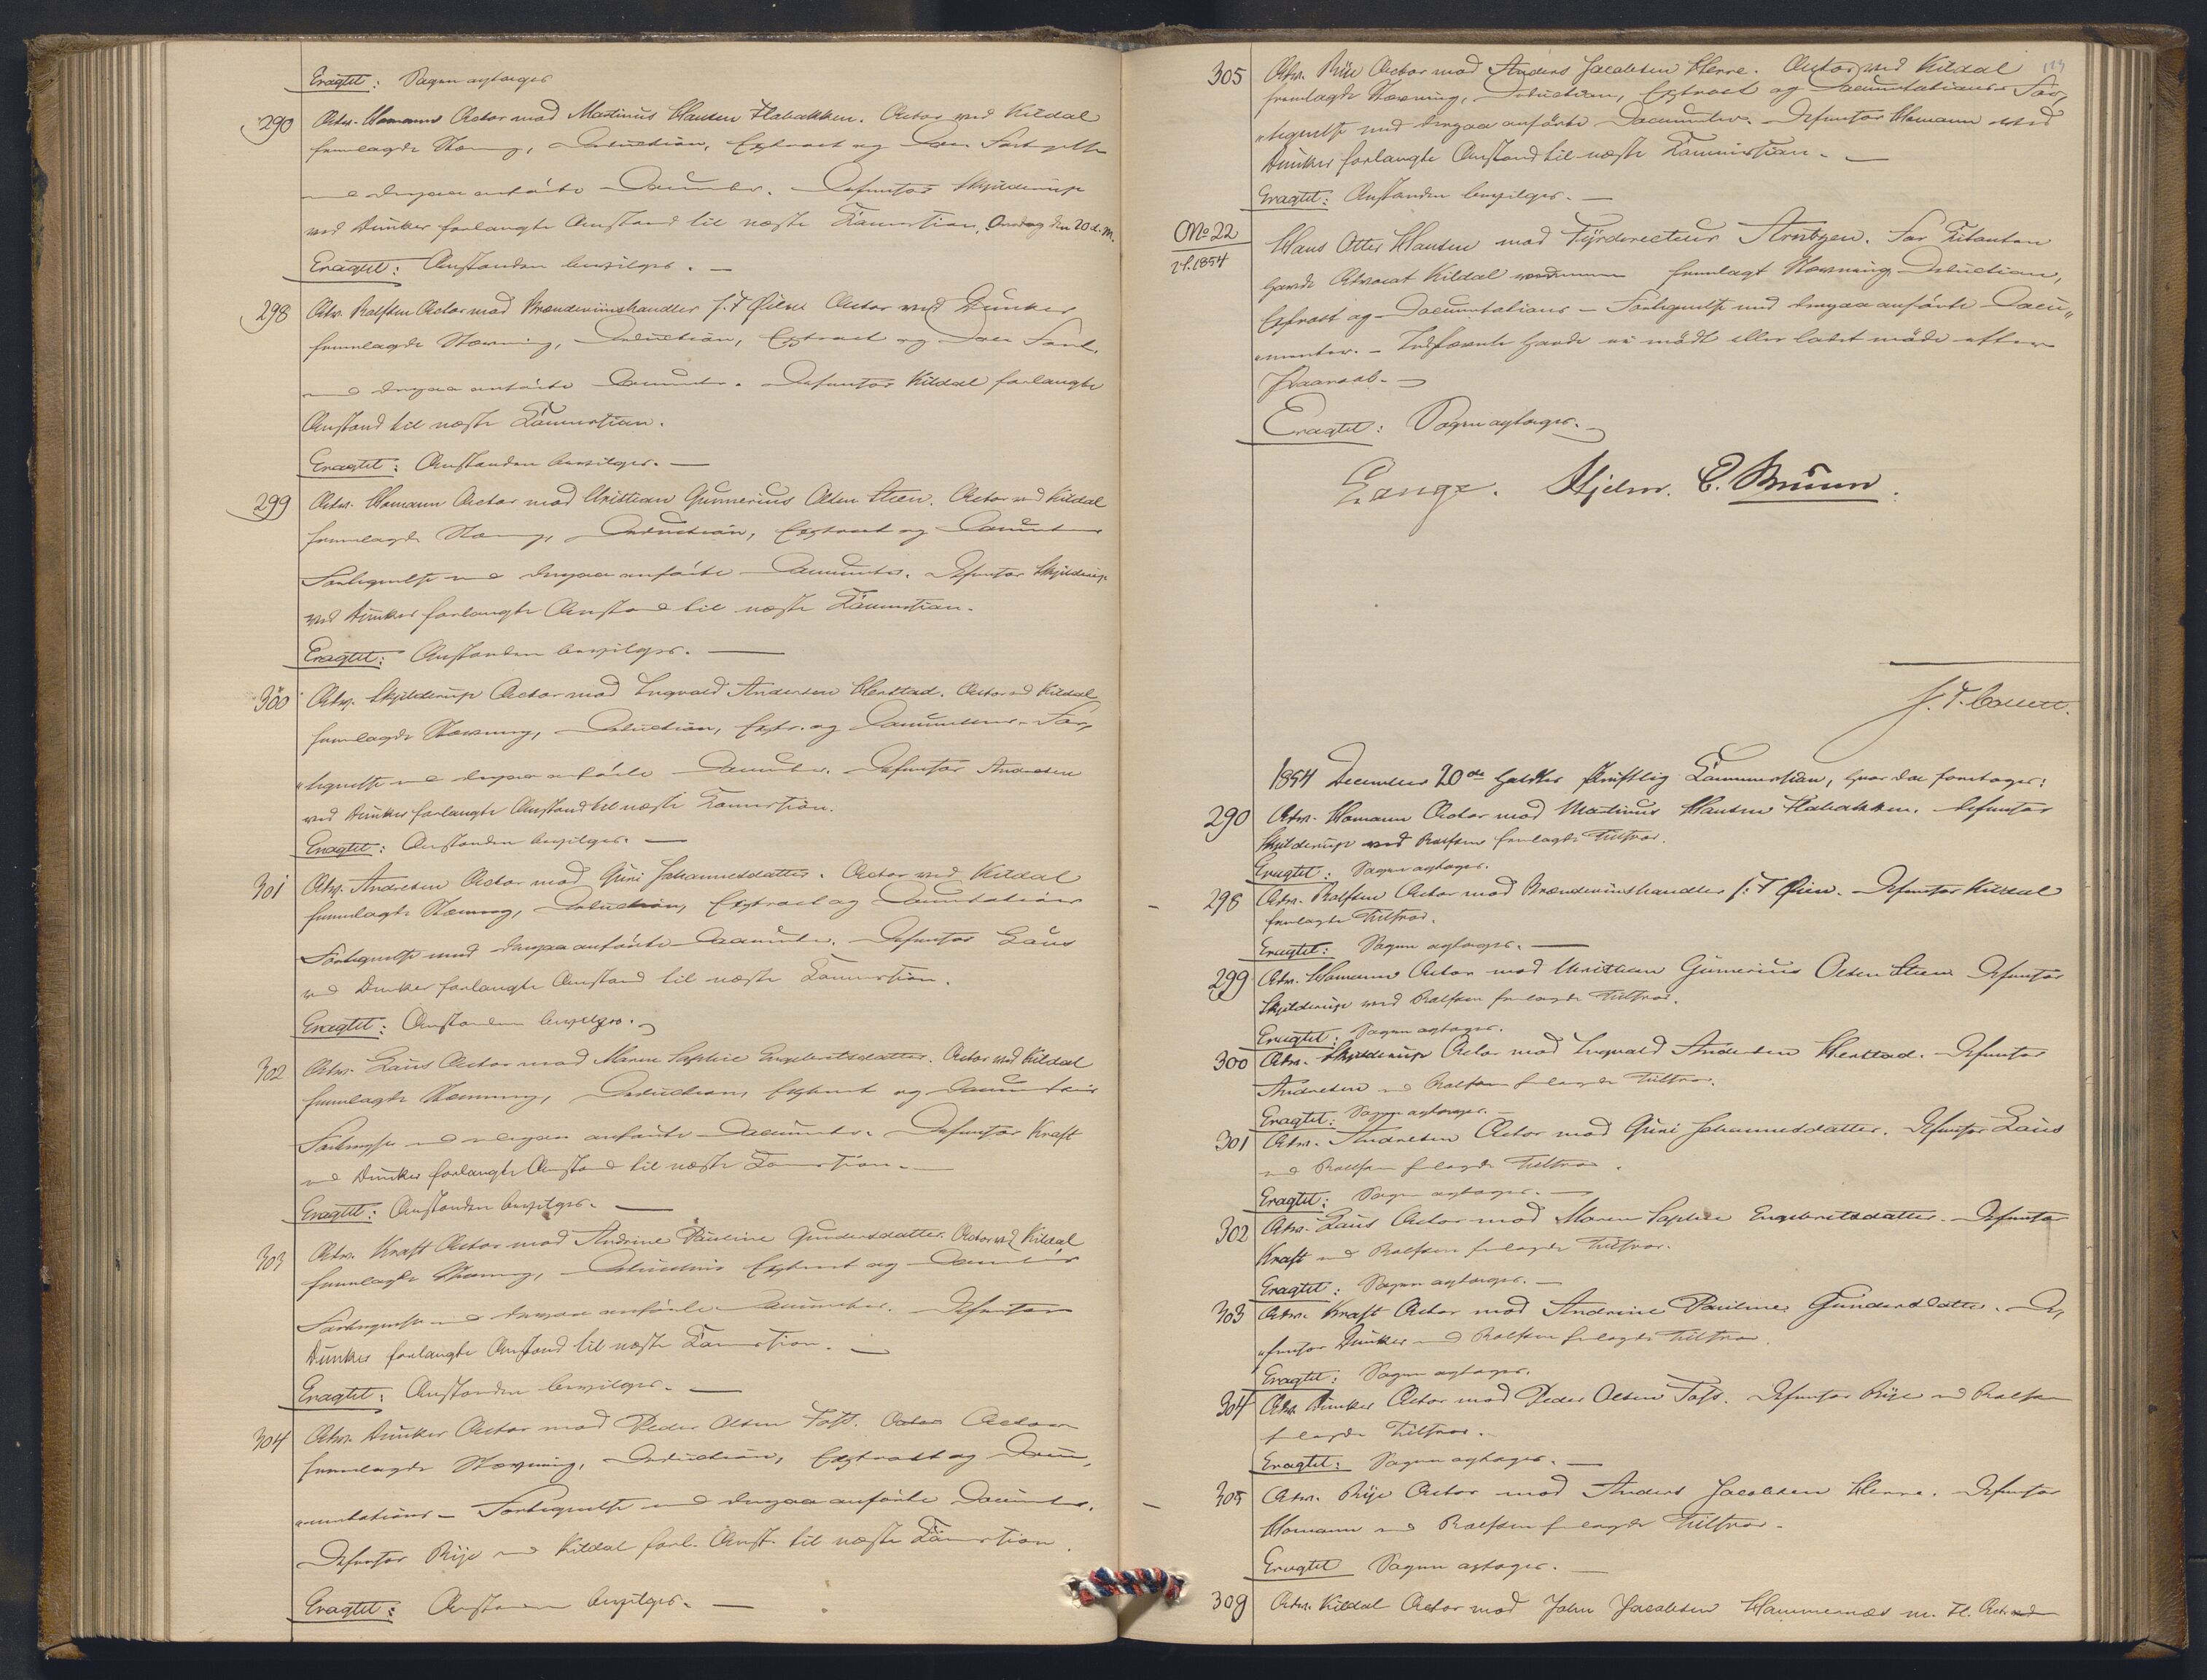 Eragtet: Sagen optages
290 Adv. Homann Actor mod Martinus Hansen Flabakken. Actor ved Kildal
fremlagde Stævning, Deduction, Extract og Doc. Fortegnelse
med derpaa anförte Documenter. Defensor Skjelderup
ved Dunker forlangte Anstand til næste Examination, Onsdag den 20 d. M.
Eragtet: Anstanden bevilges. —
298 Adv. Rolfsen Actor mod Brændeviinshandler J. T. Øien. Actor ved Dunker
fremlagde Stævning, Deduction, Extract og Doc. Fort.
med derpaa anförte Documenter. Defensor Kildal forlangte
Anstand til næste Examination.
Eragtet: Anstanden bevilges. —
299 Adv. Homann Actor mod Christian Gunnerius Olsen Steen. Actor ved Kildal
fremlagde Stævning, Deduction, Extract og Document
Fortegnelse med derpaa anförte Documenter. Defensor Skjelderup
ved Dunker forlangte Anstand til næste Examination.
Eragtet: Anstanden bevilges. —
300 Adv. Skjelderup Actor mod Ingvald Andersen Herstad. Actor ved Kildal
fremlagde Stævning, Deduction, Extr. og Documentations For-
"tegnelse med derpaa anförte Documenter. Defensor Andresen
ved Dunker forlangte Anstand til næste Examination.
Eragtet: Anstanden bevilges. —
301 Adv. Andresen Actor mod Guri Johannesdatter. Actor ved Kildal
fremlagde Stævning, Deduction, Extract og Documentations
Fortegnelse med derpaa anförte Documenter. Defensor Laus
ved Dunker forlangte Anstand til næste Examination.
Eragtet: Anstanden bevilges.
302 Adv. Laus Actor mod Maren Sophie Engebretsdatter. Actor ved Kildal
fremlagde Stævning, Deduction, Extract og Documentations
Fortegnelse med derpaa anförte Documenter. Defensor Kraft
ved Dunker forlangte Anstand til næste Examination. —
Eragtet: Anstanden bevilges. —
303 Adv. Kraft Actor mod Andrine Pauline Gundersdatter. Actor ved Kildal
fremlagde Stævning, Deduction Extract og Documentations
Fortegnelse med derpaa anförte Documenter. Defensor
Dunker forlangte Anstand til næste Examination. —
Eragtet: Anstanden bevilges. —
304 Adv. Dunker Actor mod Peder Olsen Foss. Actor
fremlagde Stævning, Deduction, Extract og Docu-
"mentations-Fortegnelse med derpaa anförte Documenter.
Defensor Rije ved Kildal forl. Anst. til næste Examination.
Eragtet: Anstanden bevilges. —
305 Adv. Rije Actor mod Anders Jacobsen Herre. Actor ved Kildal
fremlagde Stævning, Deduction, Extract og Documentations For-
"tegnelse med derpaa anförte Documenter. Defensor Homann ved
Dunker forlangte Anstand til næste Examination. —
Eragtet: Anstanden bevilges. —
No 22 Hans Otter Hansen mod Fyrdirecteur Arntzen. For Citanten
1854 havde Advocat Kildal fremlagt Stævning, Deduction,
Extract og Documentations-Fortegnelse med derpaa anförte Docu"
"menter. – Indstævnte havde ei mödt eller ladet möde efter
Paaraab. —
Eragtet: Sagen optages.
Lange. Hjelm. C. Bruun.
J. T. Collett.
1854 December 20de holdtes skriftlig Examination, hvor da foretoges:
290 Adv. Homann Actor mod Martinus Hansen Flabakken. Defensor
Skjelderup ved Rolfsen fremlagde Tilsvar.
Eragtet: Sagen optages.
298 Adv. Rolfsen Actor mod Brændevinshandler J. T. Øien. Defensor Kildal
fremlagde Tilsvar.
Eragtet: Sagen optages. —
299 Adv. Homann Actor mod Christian Gunerius Olsen Steen. Defensor
Skjelderup ved Rolfsen fremlagde Tilsvar.
Eragtet: Sagen optages.
300 Adv. Skjelderup Actor mod Ingvald Andersen Herstad. Defensor
Andresen ved Rolfsen fremlagde Tilsvar.
Eragtet: Sagen optages. —
301 Adv. Andresen Actor mod Guri Johannesdatter. Defensor Laus
ved Rolfsen fremlagde Tilsvar.
Eragtet: Sagen optages. —
302 Adv. Laus Actor mod Maren Sophie Engebretsdatter. Defensor
Kraft ved Rolfsen fremlagde Tilsvar.
Eragtet: Sagen optages. —
303 Adv. Kraft Actor mod Andrine Pauline Gundersdatter. De-
"fensor Dunker ved Rolfsen fremlagde Tilsvar.
Eragtet: Sagen optages.
304 Adv. Dunker Actor mod Peder Olsen Foss. Defensor Rije ved Rolfsen
fremlagde Tilsvar.
Eragtet: Sagen optages. —
305 Adv. Rije Actor mod Anders Jacobsen Herre. Defensor
Homann ved Rolfsen fremlagde Tilsvar.
Eragtet Sagen optages. —
309 Adv. Kildal Actor mod John Jacobsen Hammernæs m. Fl. Actor